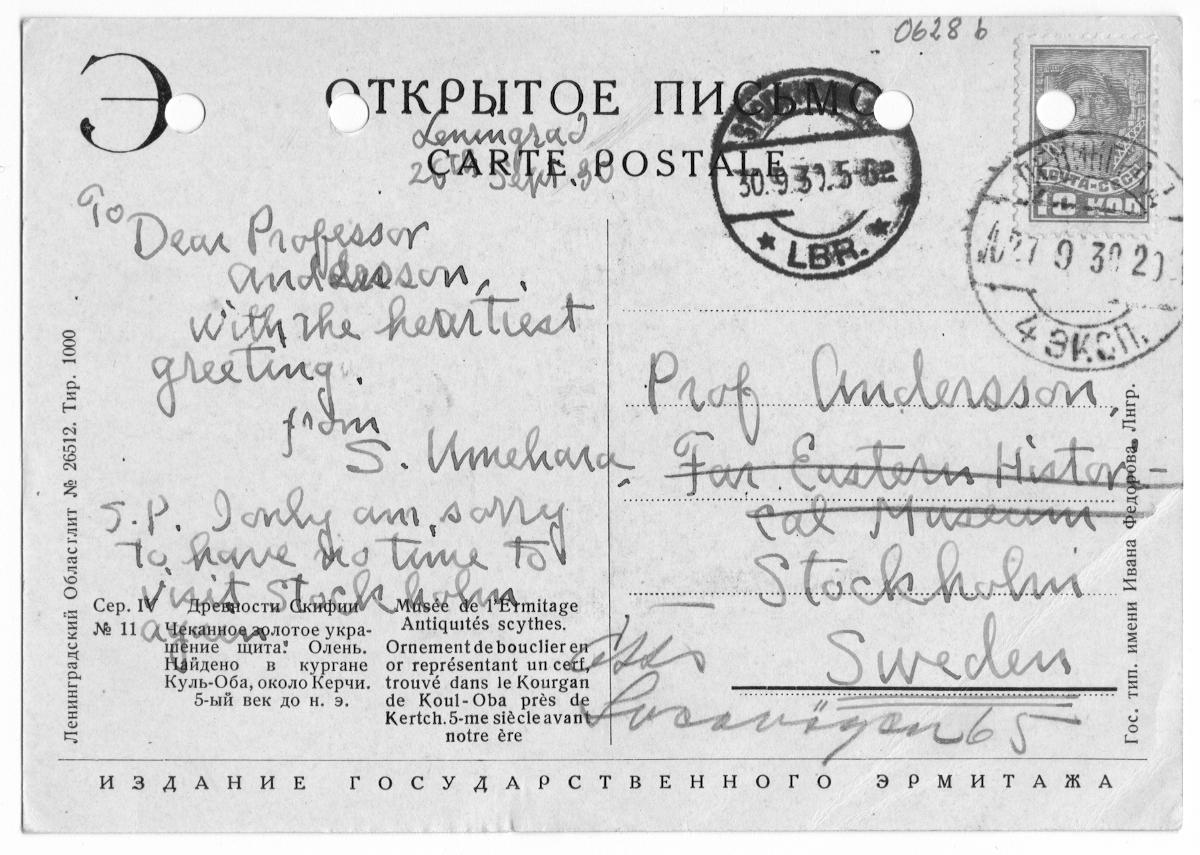 0628 b
Э
ОТКРЫТОЕ ПИСЬМО
CARTE POSTALE
Leningrad
26th Sept. 30
To
Dear Professor
Andersson,
with the heartiest
greeting.
from
S. Umehara
S.P. I only am sorry
to have no time to
visit Stockholm
again
Сер. IV Древности Скифии
№ 11 Чеканное золотое укра-
шение щита. Олень.
Найдено в кургане
Куль-Оба, около Керчи.
5-ый век до н. э.
Musée de l'Ermitage
Antiquités scythes.
Ornement de bouclier en
or représentant un cerf,
trouvé dans le Kourgan
de Koul-Oba près de
Kertch. 5-me siècle avant
notre ère
Ленинградский Областлит № 26512. Тир. 1000
30.9.30.5-6
LBR.
ПОЧТА-СССР
10 КОП
27 9 30 20
4 ЭКСП.
Prof Andersson,
Far Eastern Histori-
cal Museum
Stockholm
Sweden
65
Гос. тип. имени Ивана Федорова, Лнгр.
ИЗДАНИЕ ГОСУДАРСТВЕННОГО ЭРМИТАЖА